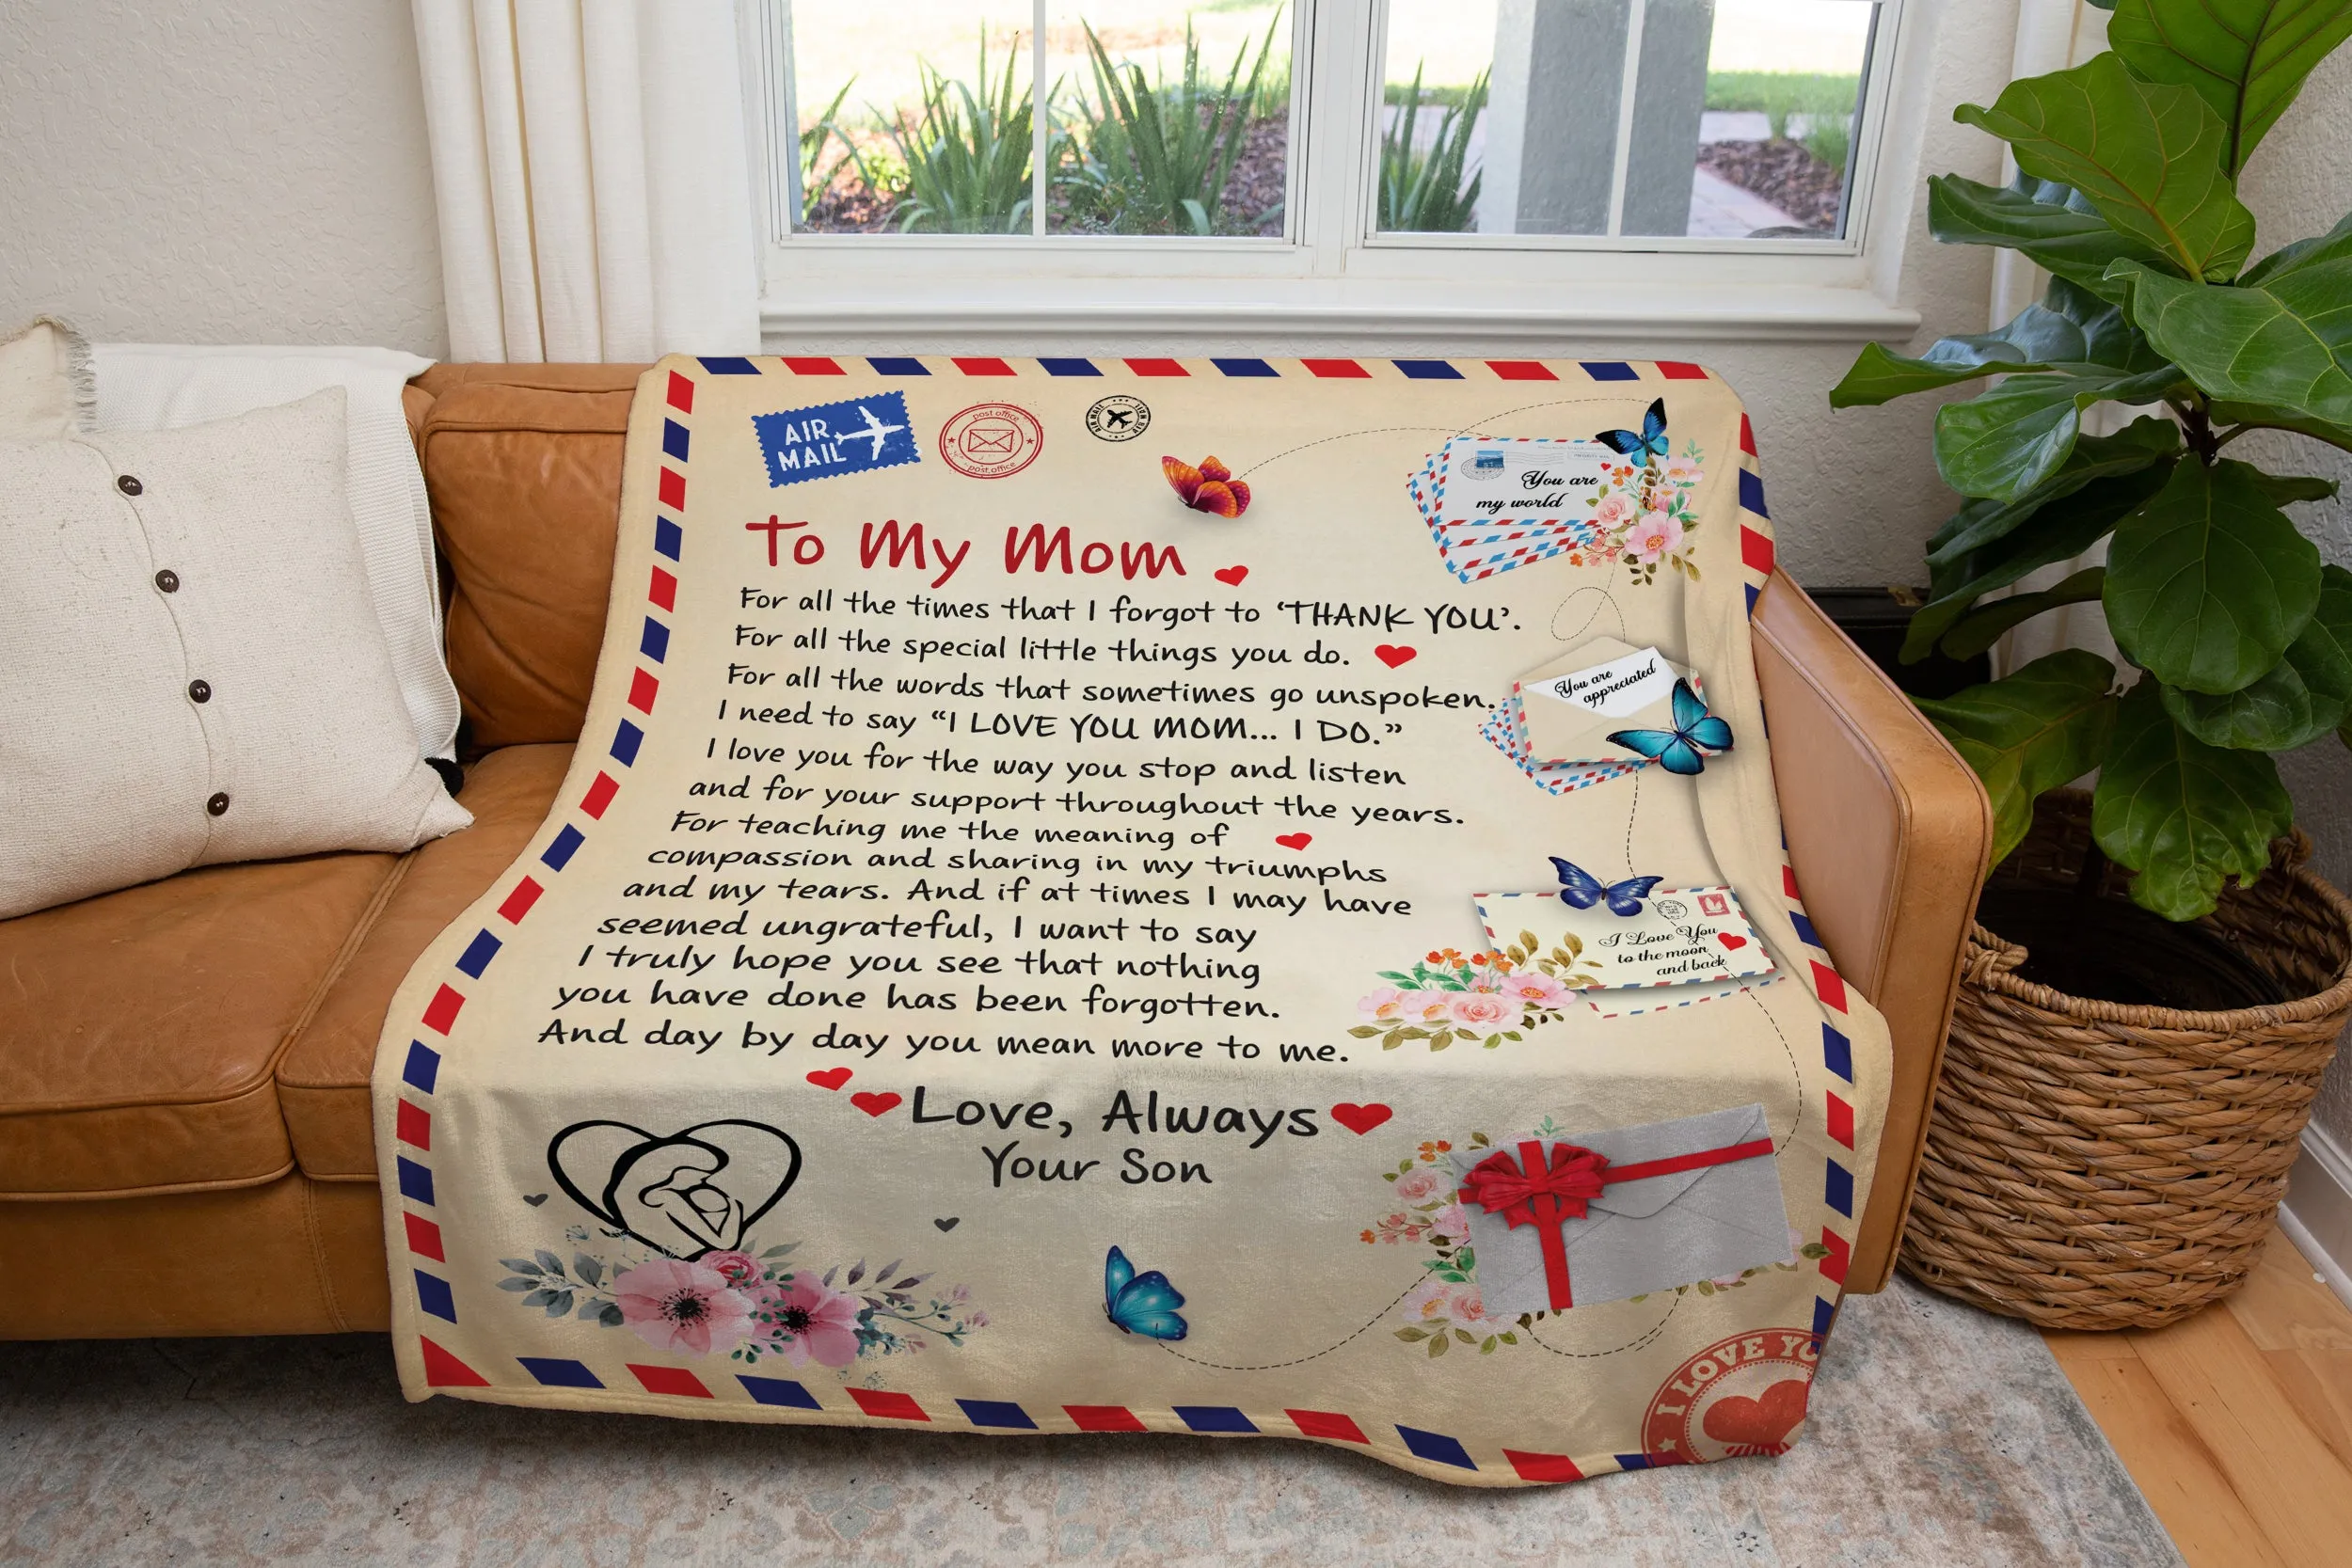 AIR
MAIL
post office
post office
You are
my world
To My Mom
For all the times that I forgot to ‘THANK YOU’.
For all the special little things you do.
For all the words that sometimes go unspoken.
I need to say “I LOVE YOU MOM... I DO.”
I love you for the way you stop and listen
and for your support throughout the years.
For teaching me the meaning of
compassion and sharing in my triumphs
and my tears. And if at times I may have
seemed ungrateful, I want to say
I truly hope you see that nothing
you have done has been forgotten.
And day by day you mean more to me.
You are
appreciated
I Love You
to the moon
and back
Love, Always
Your Son
I LOVE YO